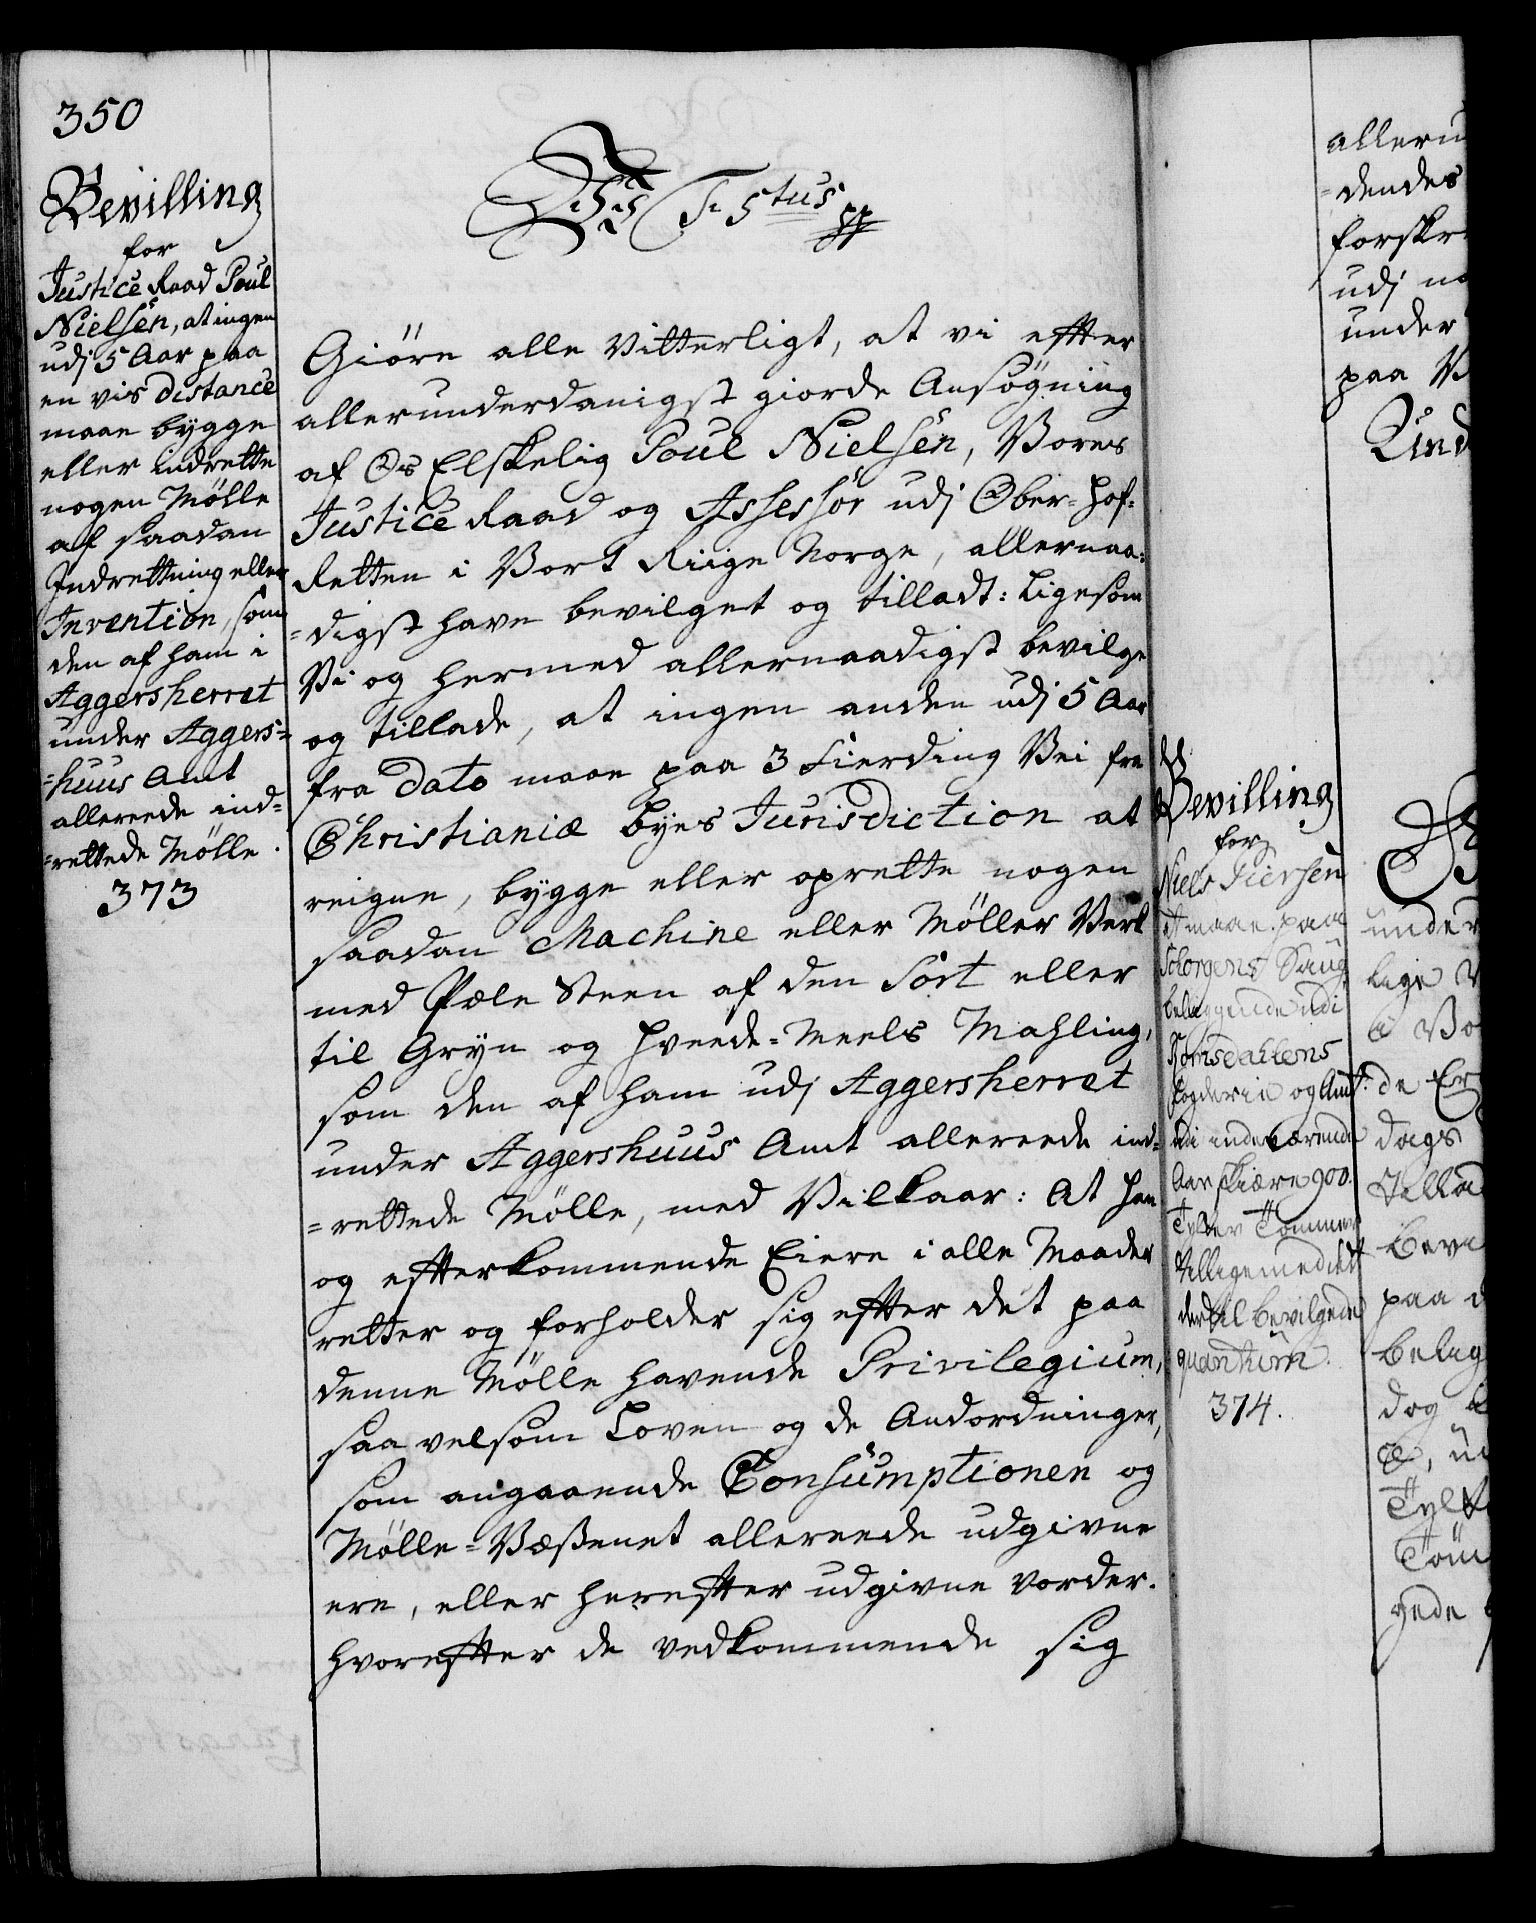 350
Bevilling
for
Justice Raad Poul
Nielsen, at ingen
udj 5 Aar paa
en vis distance
maae bygge
eller indrette
nogen Mølle
af saadan
Indrettning eller
Invention, som
den af ham i
Aggersherret
under Aggers=
=huus Amt
allereede ind=
=rettede Mølle.
373
F 5tus pp
Giöre alle Vitterligt, at vi efter
allerunderdanigst giorde Ansøgning
af Os Elskelig Poul Nielsen, Vores
Justice Raad og Assessor udj Ober=Hof=
Retten i Vort Riige Norge, allernaa=
=digst have bevilget og tilladt: Ligesom
Vi og hermed allernaadigst bevilge
og tillade, at ingen anden udj 5 Aar
fra Dato maae paa 3 Fierding Vei fra
Christianiæ byes Jurisdiction at
reigne, bygge eller oprette nogen
saadan Machine eller Møller Verk
med Pele Steen af den Sort eller
til Gryn og Hveede=Meels Mahling,
som den af ham udj Aggersherret
under Aggershuus Amt allereede ind=
=rettede Mølle, med Vilkaar: At han
og efterkommende Eiere i alle Maader
retter og forholder sig efter det paa
denne Mølle havende Privilegium,
saa velsom Loven og de Andordninger,
som angaaende Consumptionen og
Mølle=Væßenet allereede udgivne
ere, eller herefter udgivne vorder.
hvorefter de vedkommende sig
Bevilling
for
Niels Iversen
at maae paa
Saug
beliggende udi
Romsdahlens
Fogderie og Amt
udi indeværende
Aar skiære 900.
Tylter Tømmer
tilligemed det
dertil bevilgede
quantum.
374.
alleru
=dendes
forskr
udj no
under
paa V
Lind
under
lige V
i Vo
de Er
dags
tillad
bevi
paa d
belig
dog
Tylt
Tøm
gede